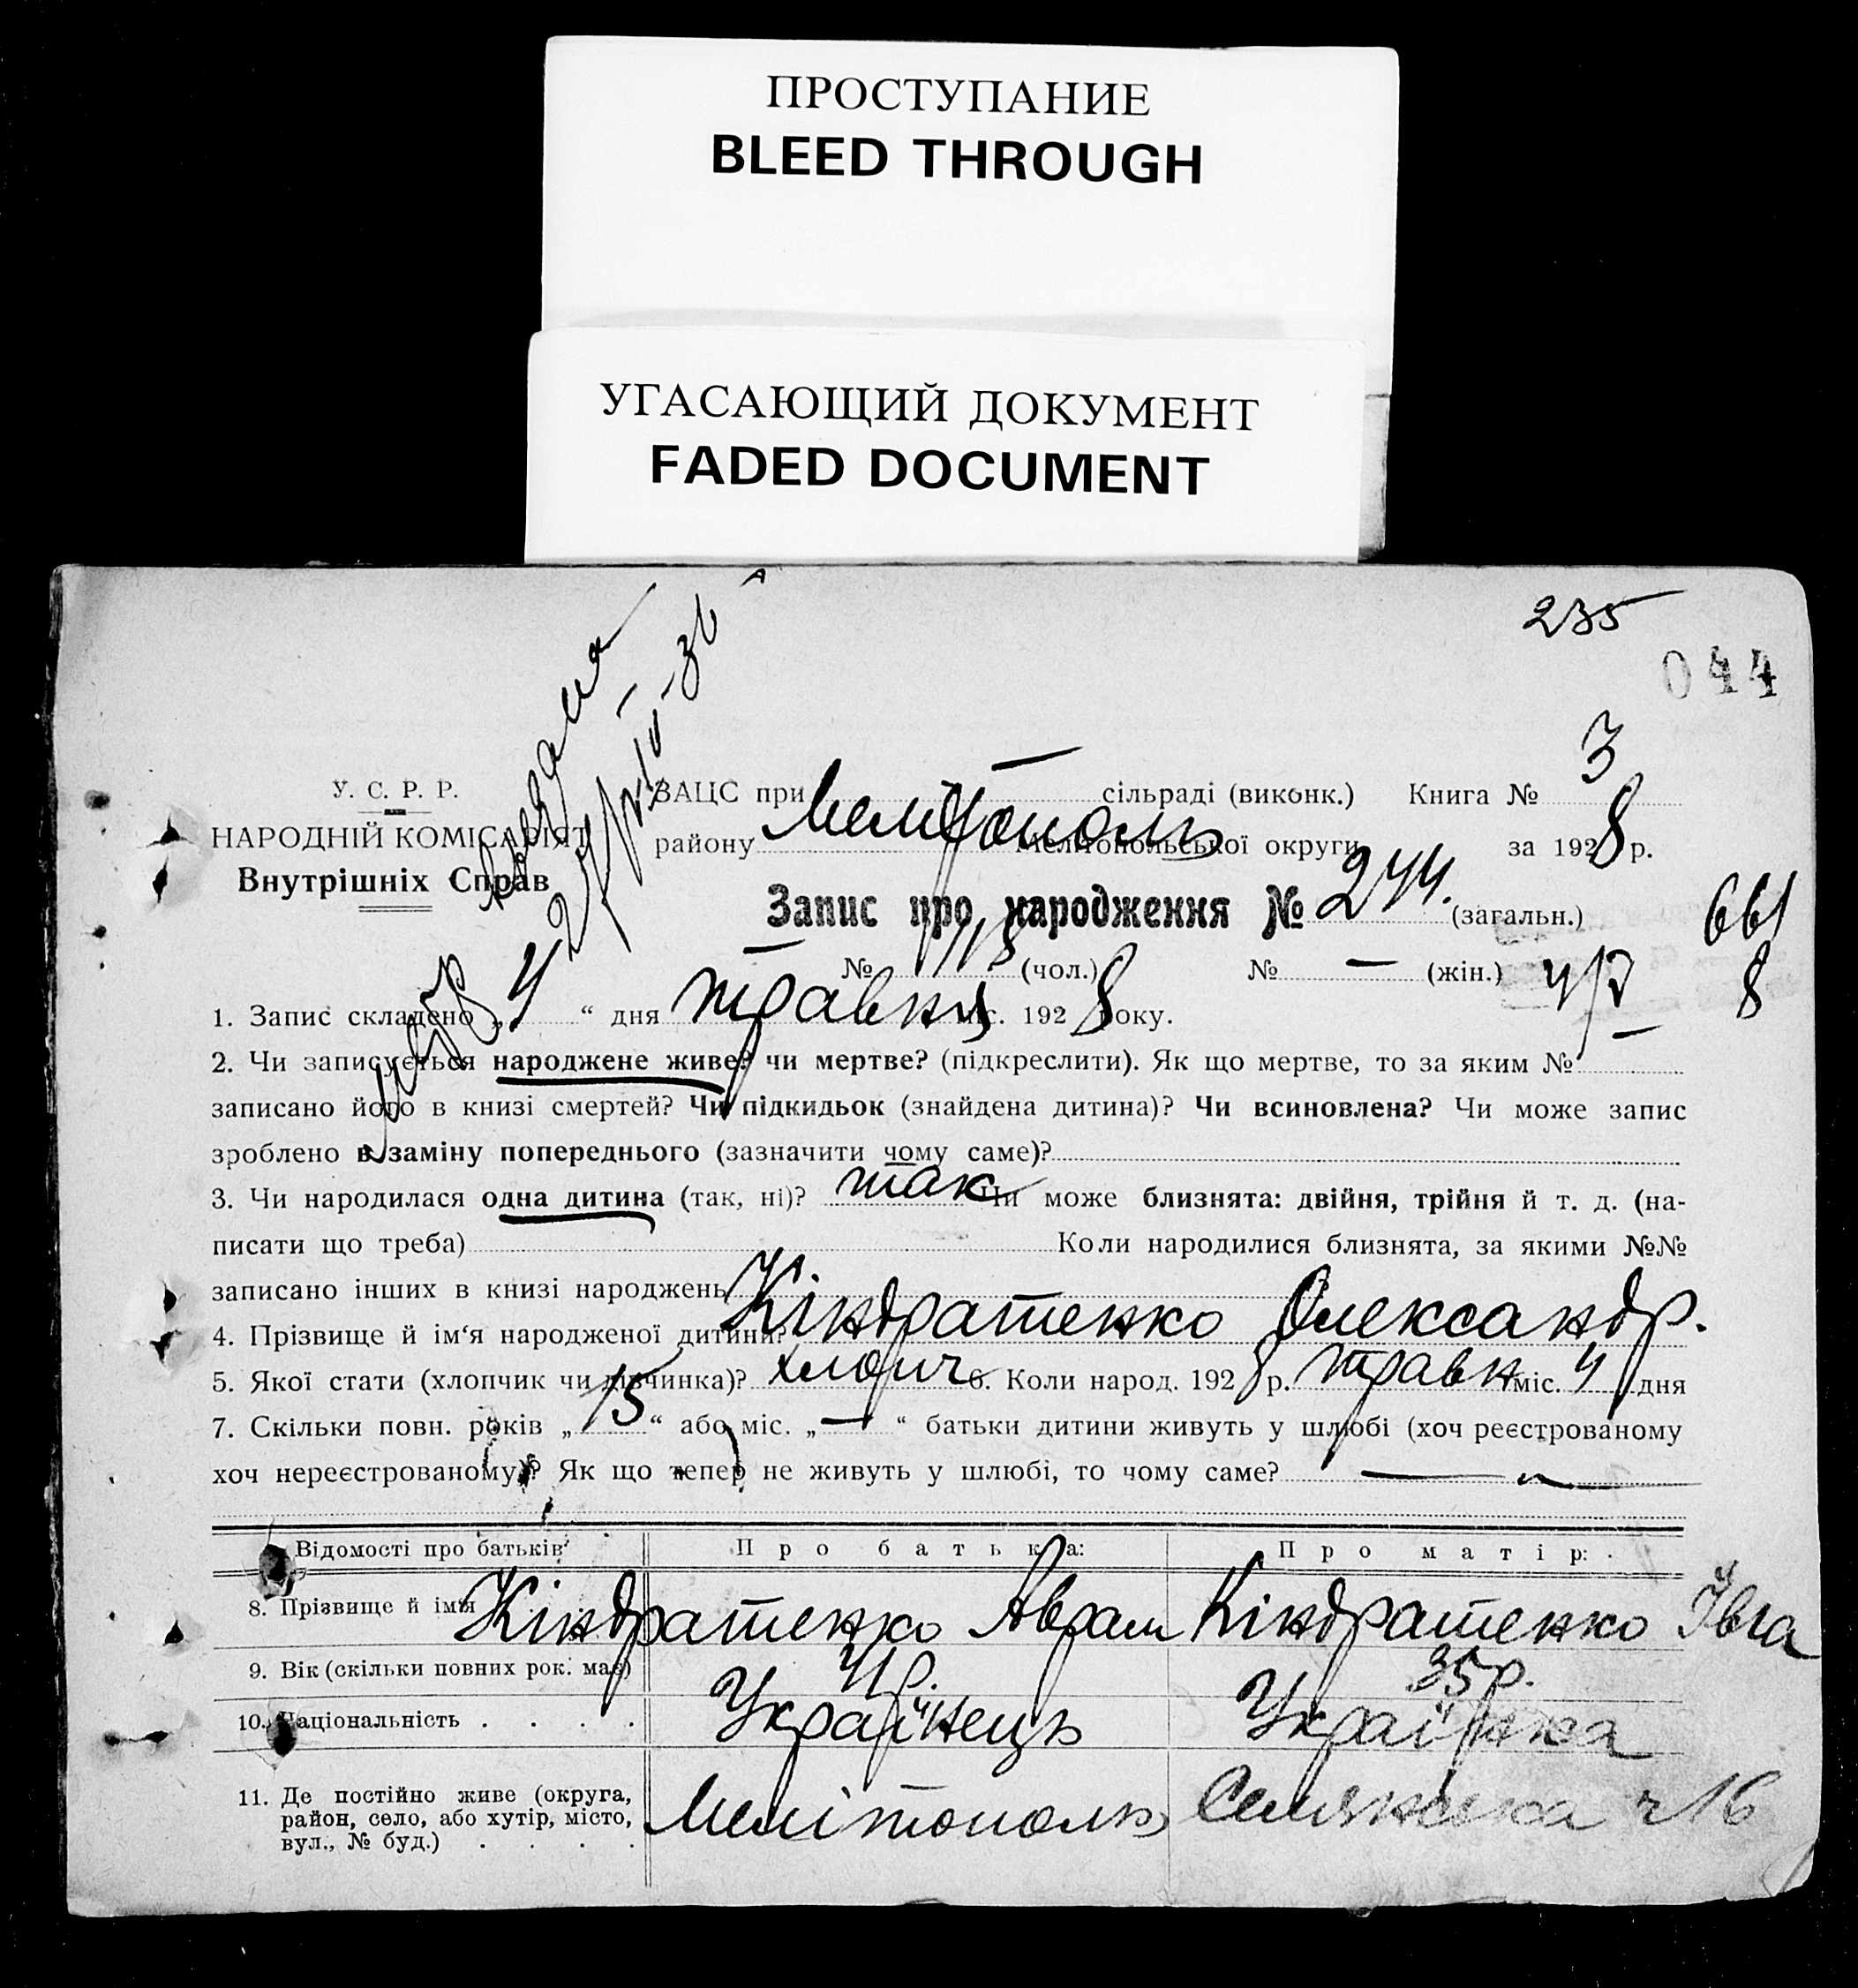 ПРОСТУПАНИЕ
BLEED THROUGH
УГАСАЮЩИЙ ДОКУМЕНТ
FADED DOCUMENT
235
044
У. С. Р. Р.
НАРОДНІЙ КОМІСАРІЯТ
Внутрішніх Справ
ЗАЦС при — сільраді (виконк.) Книга № 3
району Мелітополь Мелітопольської округи за 1928 р.
Запис про народження № 244. (загальн.)
661
8
№ 113 (чол.) № — (жін.)
1. Запис складено „4“ дня травня міс. 1928 року.
2. Чи записується народжене живе? чи мертве? (підкреслити). Як що мертве, то за яким №
записано його в книзі смертей? Чи підкидьок (знайдена дитина)? Чи всиновлена? Чи може запис
зроблено в заміну попереднього (зазначити чому саме)?
3. Чи народилася одна дитина (так, ні)? так Чи може близнята: двійня, трійня й т. д. (на-
писати що треба) Коли народилися близнята, за якими №№
записано інших в книзі народжень
4. Прізвище й ім'я народженої дитини? Кіндратенко Олександр.
5. Якої стати (хлопчик чи дівчинка)? хлопч 6. Коли народ. 1928 р. травн міс. 4 дня
7. Скільки повн. років „15“ або міс. „—“ батьки дитини живуть у шлюбі (хоч реєстрованому
хоч нереєстрованому)? Як що тепер не живуть у шлюбі, то чому саме? — „ —
Відомості про батьків: Про батька: Про матір:
8. Прізвище й імя Кіндратенко Аврам Кіндратенко Івга
9. Вік (скільки повних рок. має) 41 р. 35 р.
10. Національність . . . . Українець Українка
11. Де постійно живе (округа,
район, село, або хутір, місто,
вул., № буд.) . . . . Мелітополь, ч 16